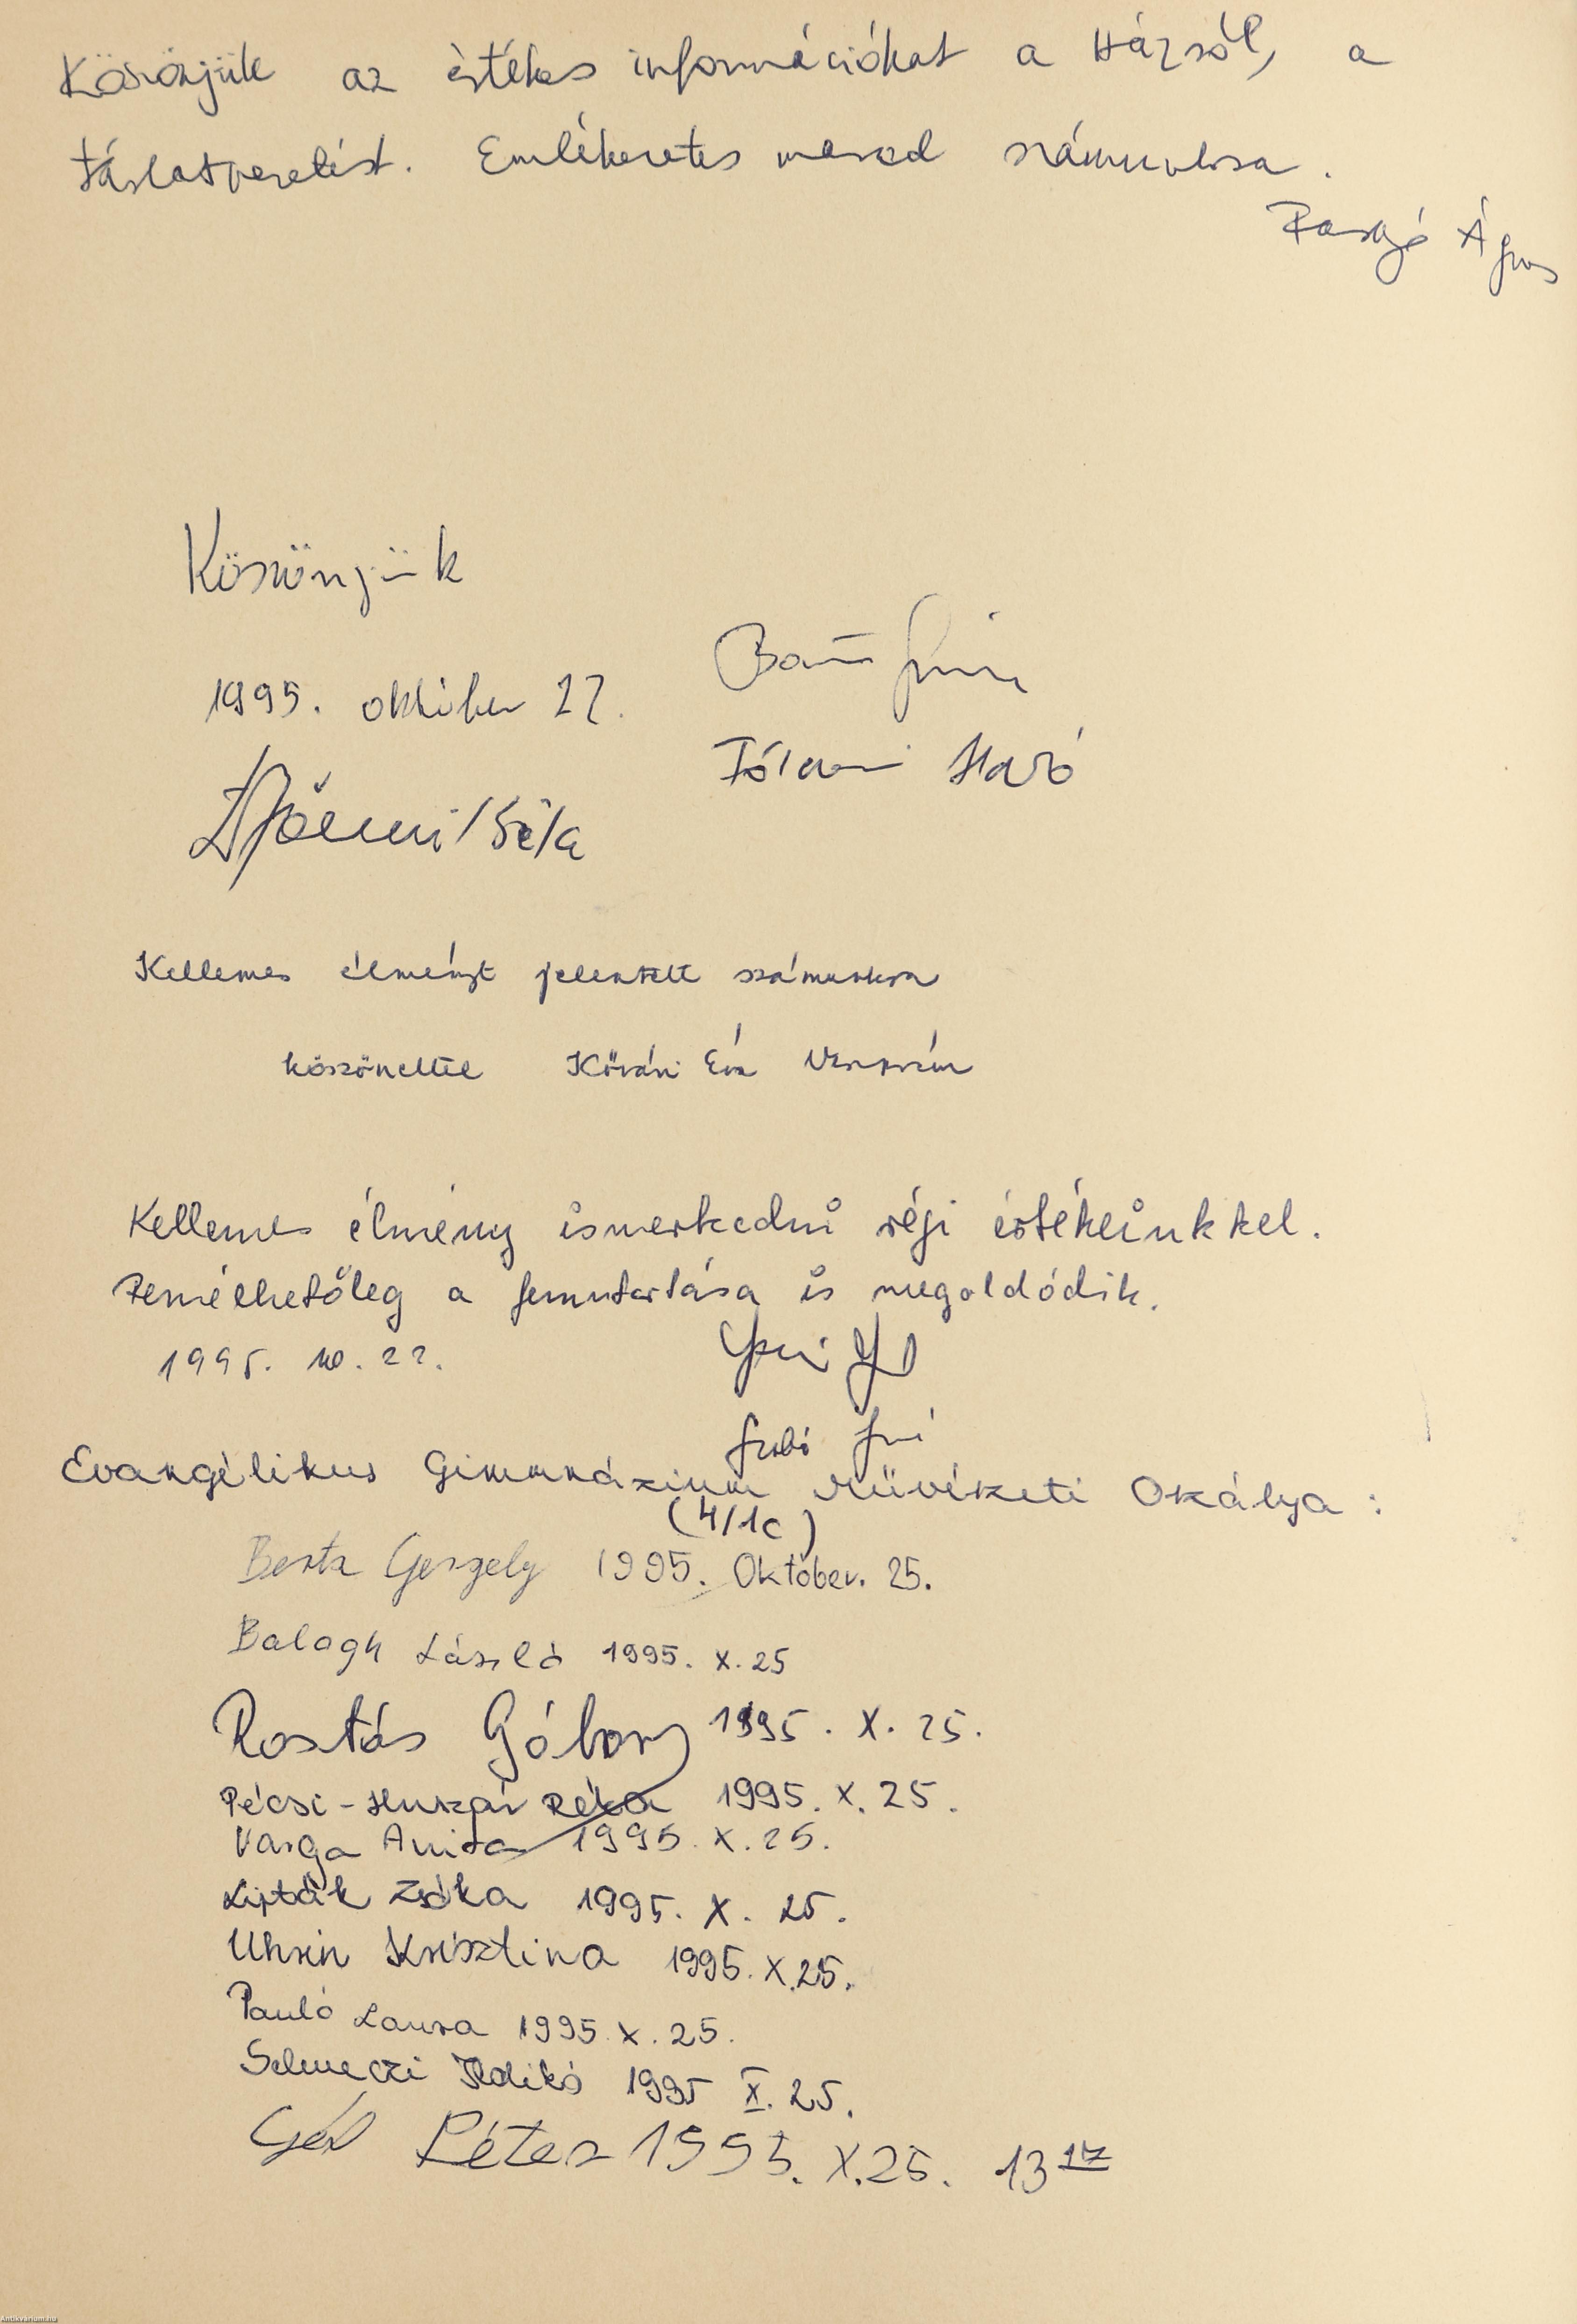 Köszönjük az értékes információkat a Házról, a
tárlatvezetést. Emlékezetes marad számunkra.
Ágnes
Köszönjük
1995. október 22.
Béla
Kellemes élményt jelentett számunkra
köszönettel Kővári Éva Veszprém
Kellemes élmény ismerkedni régi értékeinkkel.
Remélhetőleg a fenntartása is megoldódik.
1995. 10. 22.
Evangélikus Gimnázium Művészeti Osztálya:
(4/1c)
Berta Gergely 1995. Október. 25.
Balogh László 1995. X. 25
Rostás Gábor 1995. X. 25.
Pécsi-Huszár Réka 1995. X. 25.
Varga Anita 1995. X. 25.
Lipták Zsóka 1995. X. 25.
Uhrin Krisztina 1995. X. 25.
Pauló Laura 1995. X. 25.
Selmeczi Ildikó 1995 X. 25.
Gél Péter 1995. X. 25. 13 17
Antikvarium.hu